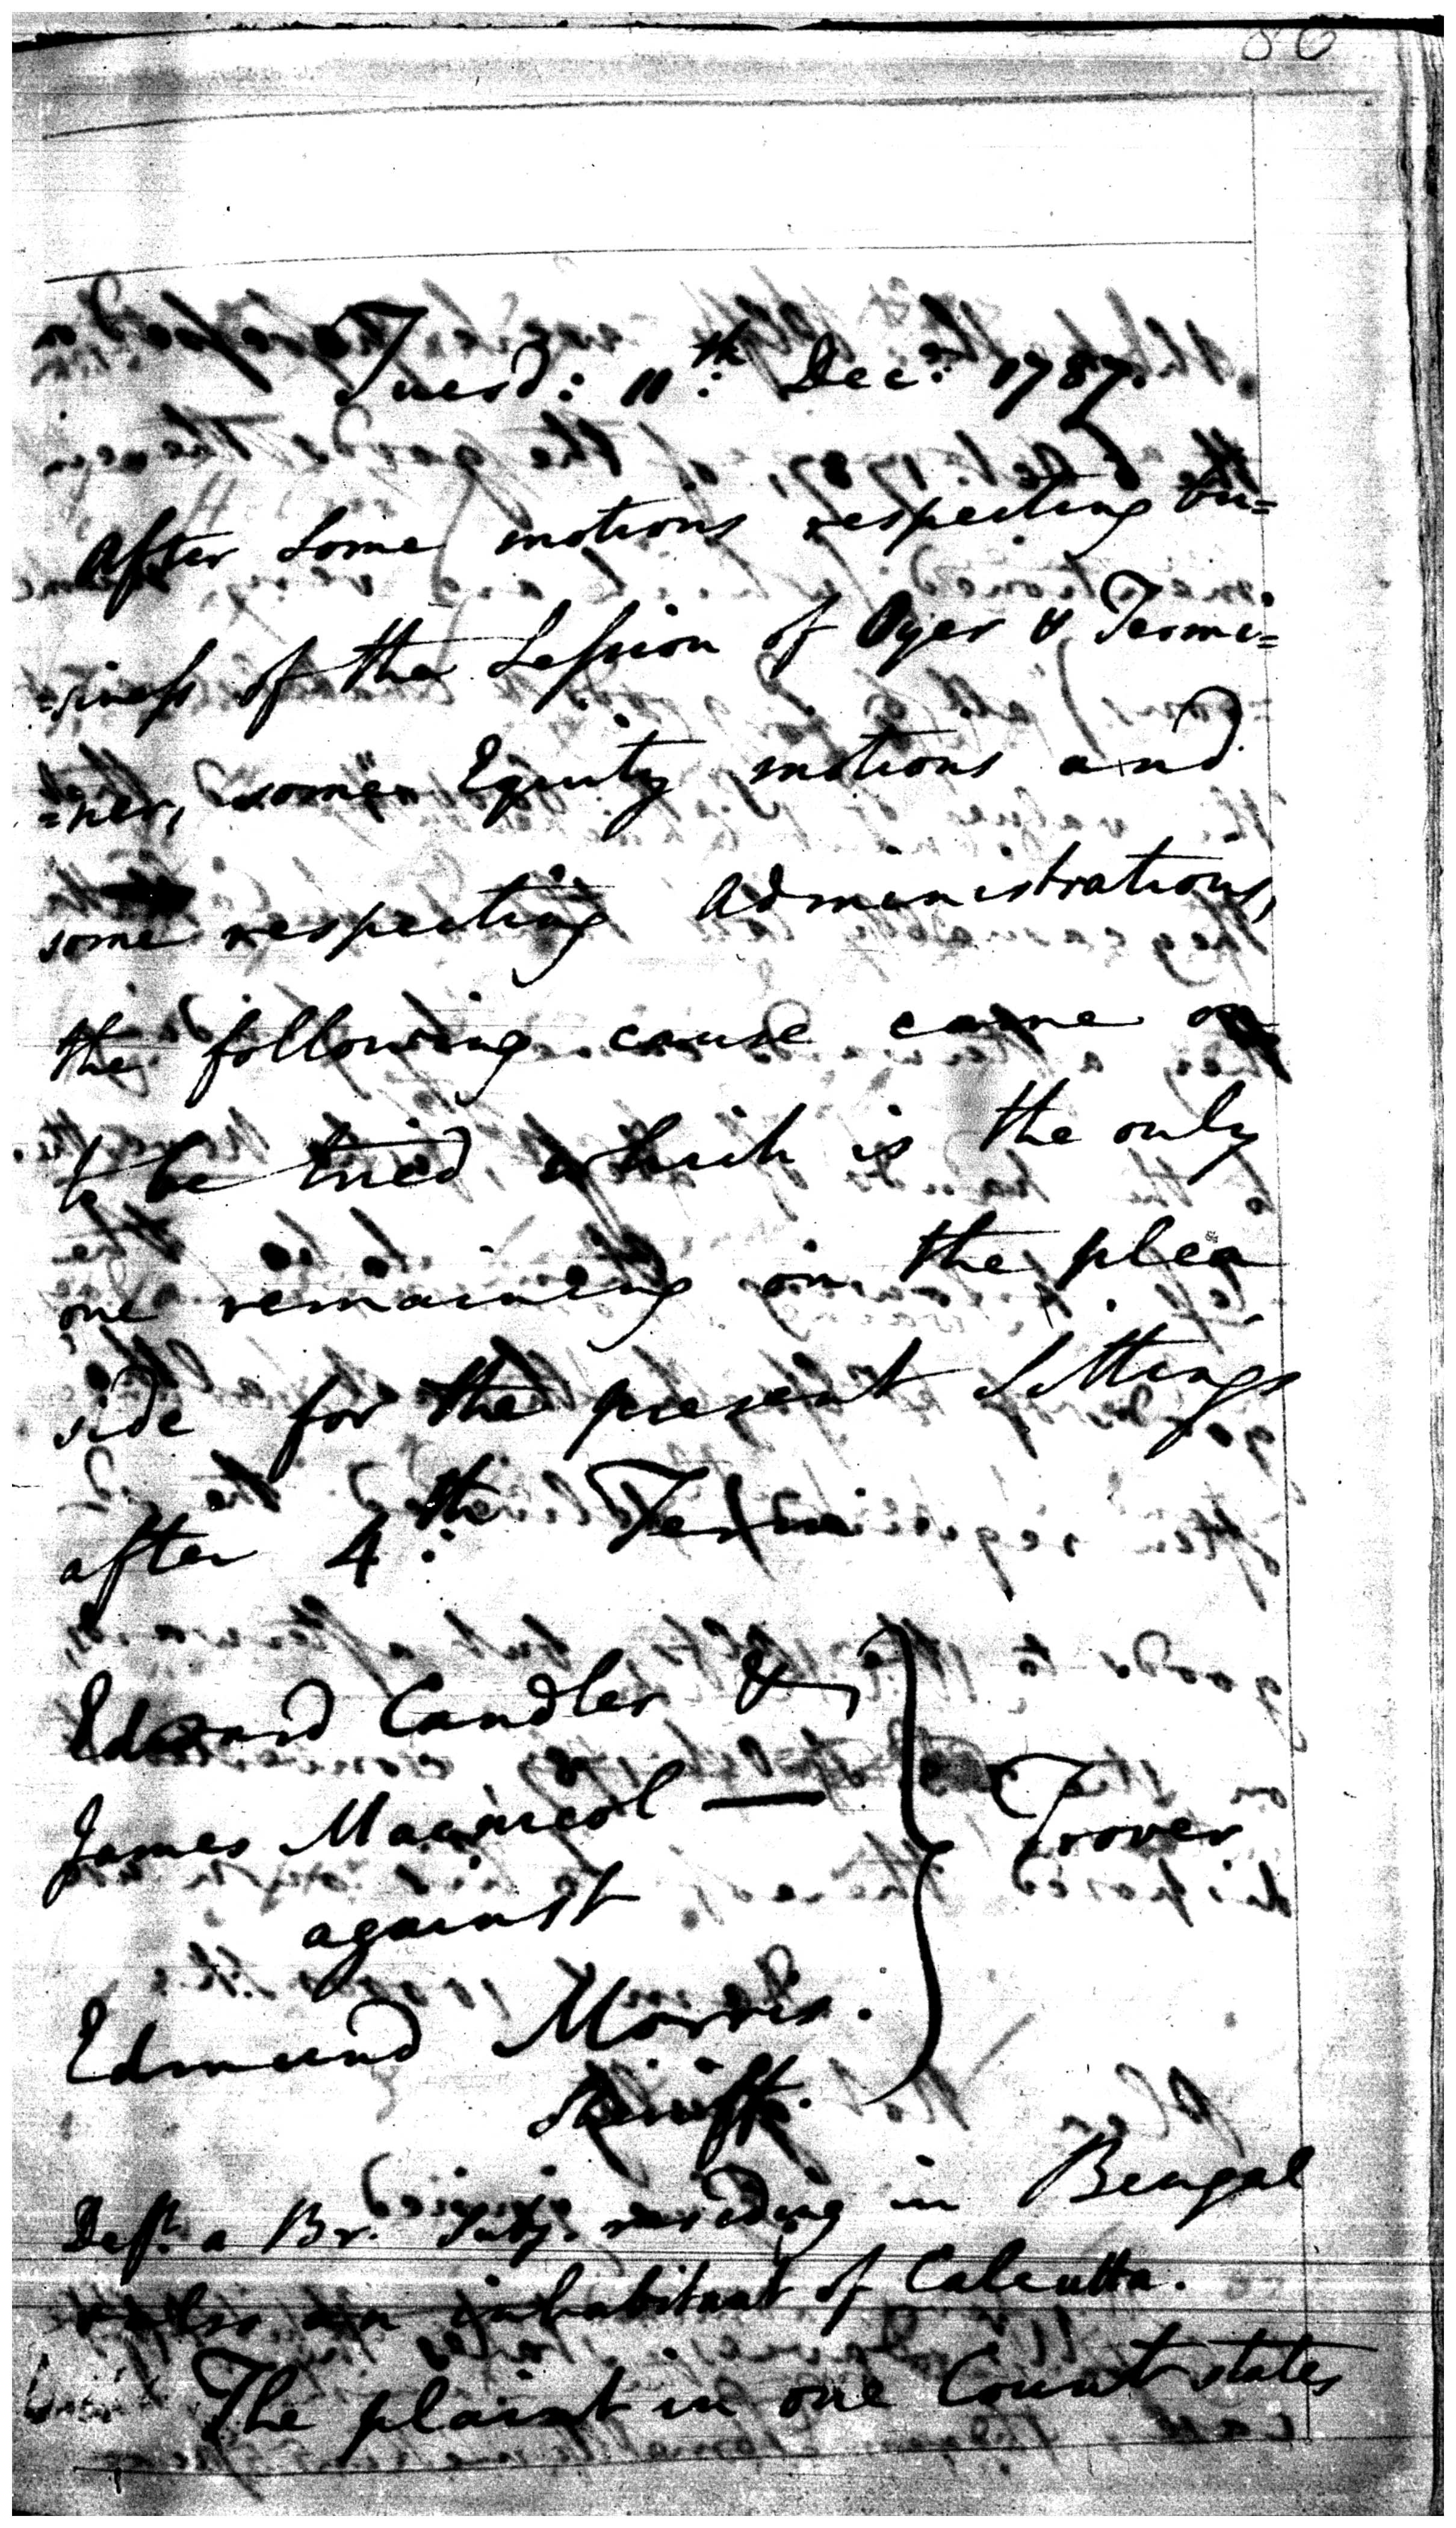 86
Tuesd: 11th: Decr: 1787.
After some motions respecting bu=
=siness of the Session of Oyer & Termi=
=ner, some Equity motions and
some respecting Administrations,
the following cause came on
to be tried which is the only
one remaining on the plea
side for the present Sittings
after 4th: Term
Edward Candler &
James Macnicol —
against
Trover
Edmund Morris.
Sheriff.
Deft. a Br. Subj. residing in Bengal
& also an inhabitant of Calcutta.
The plaint in one Count states